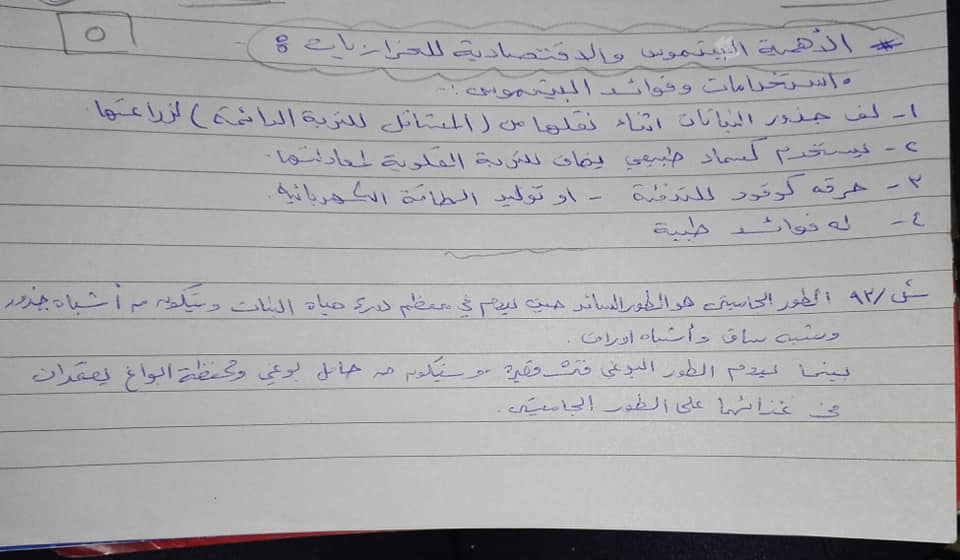 ٥
# الأهمية البيتموس والاقتصادية للحزازيات :
• استخدامات وفوائد البيتموس :-
١- لف جذور النباتات اثناء نقلها من (المشاتل للتربة الدائمة) لزراعتها.
٢- يستخدم كسماد طبيعي يضاف للتربة القلوية لمعادلتها.
٣- حرقه كوقود للتدفئة - او توليد الطاقة الكهربائية.
٤- له فوائد طبية
ش/٩٢ الطور الجاميتي هو الطور السائد حيث يدوم في معظم دورة حياة النبات ويتكون من أشباه جذور
وشبه ساق وأشباه اوراق.
بينما يدوم الطور البوغي فترة قصيرة ويتكون من حامل بوغي ومحفظة ابواغ يعتمدان
في غذائهما على الطور الجاميتي.